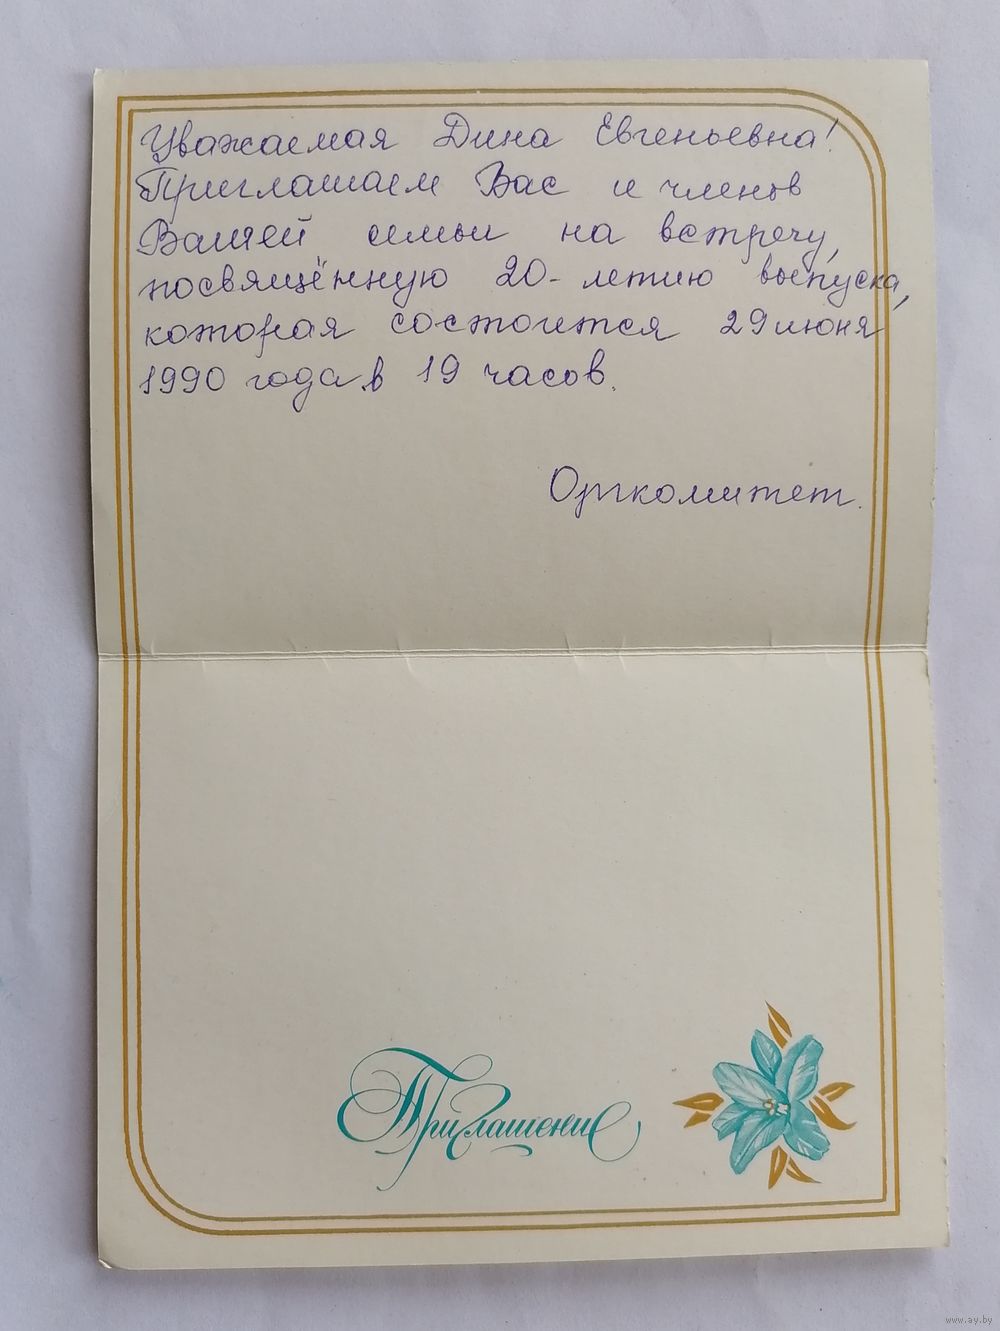 Уважаемая Дина Евгеньевна!
Приглашаем Вас и членов
Вашей семьи на встречу,
посвящённую 20-летию выпуска,
которая состоится 29 июня
1990 года в 19 часов.
Оргкомитет.
Приглашение
www.ay.by